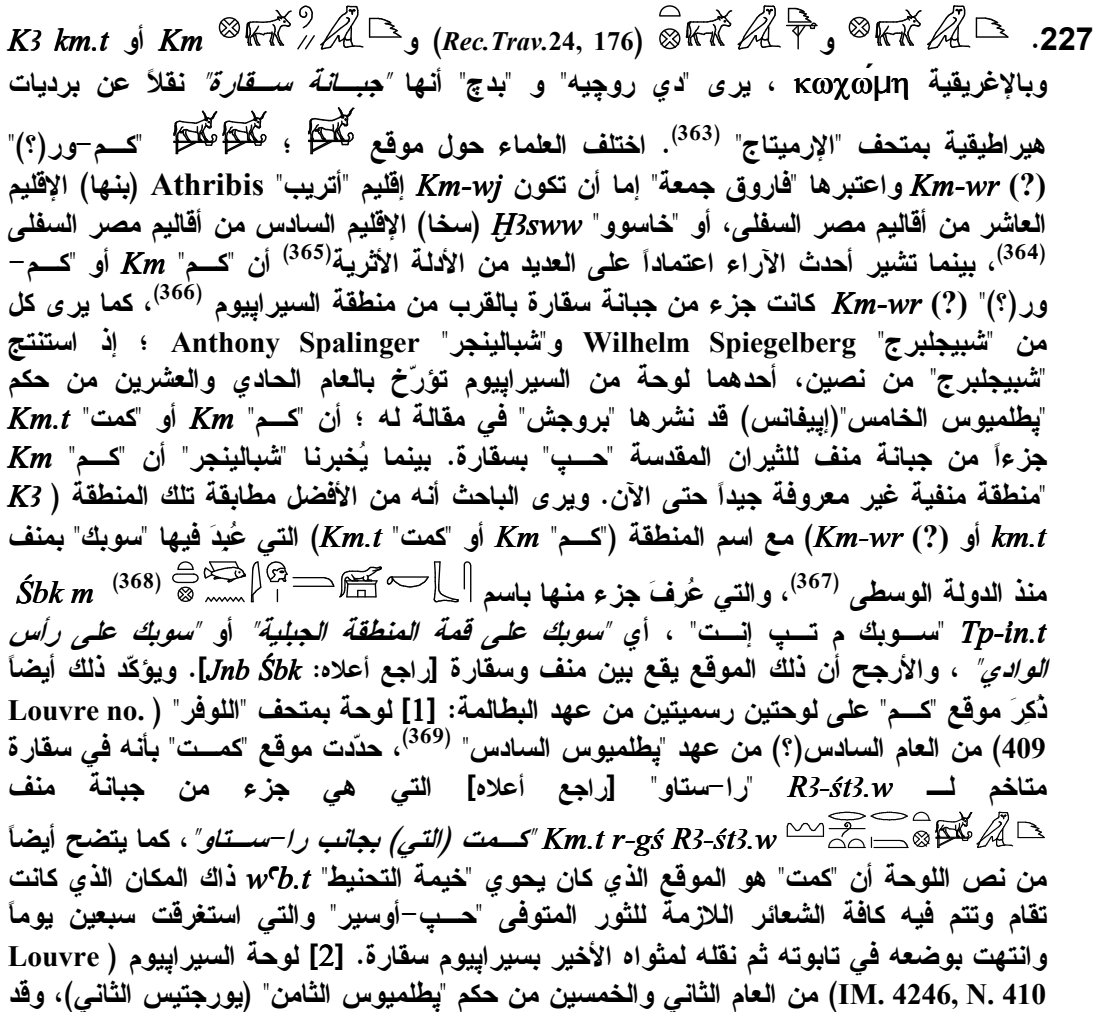 227. و (Rec.Trav.24, 176) و Km أو K3 km.t
وبالإغريقية κωχώμη ، يرى "دي روچيه" و "بدچ" أنها "جبـــانة ســقارة" نقلاً عن برديات
هيراطيقية بمتحف "الإرميتاج" (363). اختلف العلماء حول موقع ؛ "كـــم-ور(؟)"
Km-wr (?) واعتبرها "فاروق جمعة" إما أن تكون Km-wj إقليم "أتريب" Athribis (بنها) الإقليم
العاشر من أقاليم مصر السفلى، أو "خاسوو" Ḫ3sww (سخا) الإقليم السادس من أقاليم مصر السفلى
(364)، بينما تشير أحدث الآراء اعتماداً على العديد من الأدلة الأثرية(365) أن "كـــم" Km أو "كـــم-
ور(؟)" Km-wr (?) كانت جزء من جبانة سقارة بالقرب من منطقة السيراپيوم (366)، كما يرى كل
من "شبيجلبرج" Wilhelm Spiegelberg و"شبالينجر" Anthony Spalinger ؛ إذ استنتج
"شبيجلبرج" من نصين، أحدهما لوحة من السيراپيوم تؤرّخ بالعام الحادي والعشرين من حكم
"پطلميوس الخامس"(إپيفانس) قد نشرها "بروجش" في مقالة له ؛ أن "كـــم" Km أو "كمت" Km.t
جزءاً من جبانة منف للثيران المقدسة "حـــپ" بسقارة. بينما يُخبرنا "شبالينجر" أن "كـــم" Km
"منطقة منفية غير معروفة جيداً حتى الآن. ويرى الباحث أنه من الأفضل مطابقة تلك المنطقة ( K3
km.t أو Km-wr (?)) مع اسم المنطقة ("كـــم" Km أو "كمت" Km.t) التي عُبدَ فيها "سوبك" بمنف
منذ الدولة الوسطى (367)، والتي عُرفَ جزء منها باسم (368) Śbk m
Tp-in.t "ســـوبك م تـــپ إنـــت" ، أي "سوبك على قمة المنطقة الجبلية" أو "سوبك على رأس
الوادي" ، والأرجح أن ذلك الموقع يقع بين منف وسقارة [راجع أعلاه: Jnb Śbk]. ويؤكّد ذلك أيضاً
ذُكِرَ موقع "كـــم" على لوحتين رسميتين من عهد البطالمة: [1] لوحة بمتحف "اللوفر" ( Louvre no.
409) من العام السادس(؟) من عهد "پطلميوس السادس" (369)، حدّدت موقع "كمـــت" بأنه في سقارة
متاخم لـــ R3-śt3.w "را-ستاو" [راجع أعلاه] التي هي جزء من جبانة منف
Km.t r-gś R3-śt3.w "كـــمت (التي) بجانب را-ســـتاو"، كما يتضح أيضاً
من نص اللوحة أن "كمت" هو الموقع الذي كان يحوي "خيمة التحنيط" wꜥb.t ذاك المكان الذي كانت
تقام وتتم فيه كافة الشعائر اللازمة للثور المتوفى "حـــپ-أوسير" والتي استغرقت سبعين يوماً
وانتهت بوضعه في تابوته ثم نقله لمثواه الأخير بسيراپيوم سقارة. [2] لوحة السيراپيوم ( Louvre
IM. 4246, N. 410) من العام الثاني والخمسين من حكم "پطلميوس الثامن" (يورجتيس الثاني)، وقد